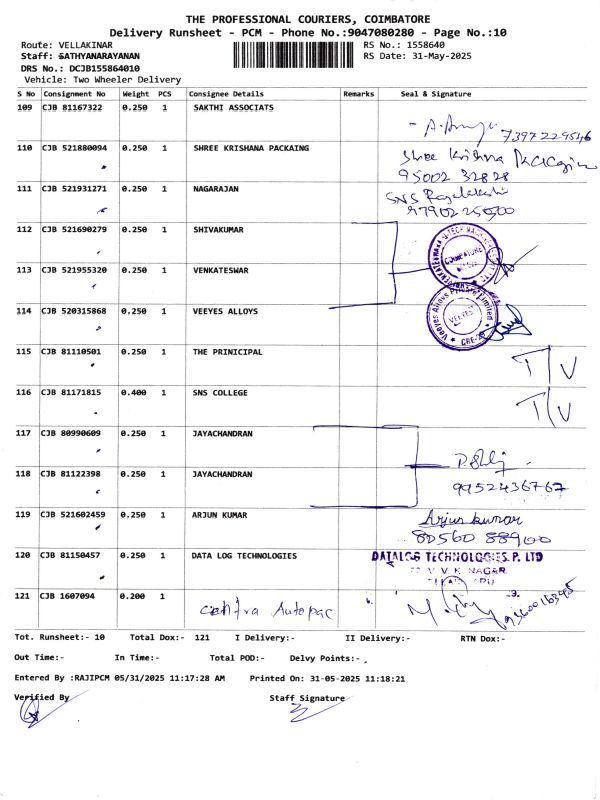 THE PROFESSIONAL COURIERS, COIMBATORE
Delivery Runsheet - PCM - Phone No.:9047080280 - Page No.:10
Route: VELLAKINAR
RS No.: 1558640
Staff: SATHYANARAYANAN
RS Date: 31-May-2025
DRS No.: DCJB155864010
Vehicle: Two Wheeler Delivery
S No Consignment No Weight PCS Consignee Details Remarks Seal & Signature
109 CJB 81167322 0.250 1 SAKTHI ASSOCIATS
7397229546
110 CJB 521880094 0.250 1 SHREE KRISHANA PACKAING Shree Krishna
95002 32828
111 CJB 521931271 0.250 1 NAGARAJAN SNS
112 CJB 521690279 0.250 1 SHIVAKUMAR
COIMBATORE
113 CJB 521955320 0.250 1 VENKATESWAR
114 CJB 520315868 0.250 1 VEEYES ALLOYS Veeyes Alloys Private Limited
115 CJB 81110501 0.250 1 THE PRINICIPAL T/V
116 CJB 81171815 0.400 1 SNS COLLEGE T/V
117 CJB 80990609 0.250 1 JAYACHANDRAN
118 CJB 81122398 0.250 1 JAYACHANDRAN
9952436767
119 CJB 521602459 0.250 1 ARJUN KUMAR Arjun kumar
80560 88900
120 CJB 81150457 0.250 1 DATA LOG TECHNOLOGIES DATALOG TECHNOLOGIES. P. LTD
V V K NAGAR
121 CJB 1607094 0.200 1 centra Autopac
Tot. Runsheet:- 10 Total Dox:- 121 I Delivery:- II Delivery:- RTN Dox:-
Out Time:- In Time:- Total POD:- Delvy Points:-
Entered By :RAJIPCM 05/31/2025 11:17:28 AM Printed On: 31-05-2025 11:18:21
Verified By Staff Signature